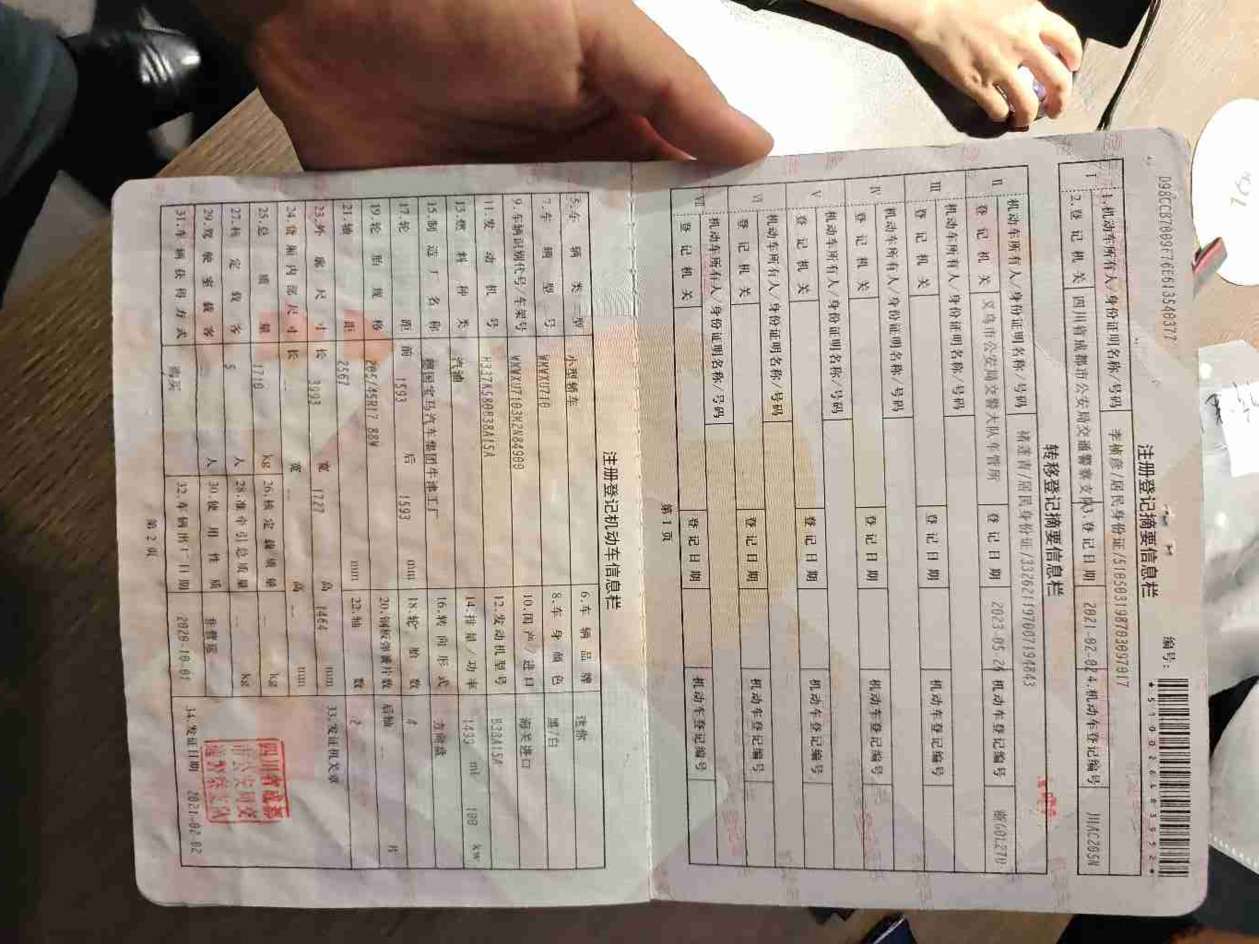 D98CC87009F76E613540377
编号：
注册登记摘要信息栏
I
1.机动车所有人/身份证明名称/号码
李桢彦/居民身份证/510503198703097017
2.登记机关
四川省成都市公安局交通警察支队
3.登记日期
2021-02-02
4.机动车登记编号
川AC205N
转移登记摘要信息栏
II
机动车所有人/身份证明名称/号码
/居民身份证/332621197007194843
登记机关
义乌市公安局交警大队车管所
登记日期
2023-05-24
机动车登记编号
III
机动车所有人/身份证明名称/号码
登记机关
登记日期
机动车登记编号
IV
机动车所有人/身份证明名称/号码
登记机关
登记日期
机动车登记编号
V
机动车所有人/身份证明名称/号码
登记机关
登记日期
机动车登记编号
VI
机动车所有人/身份证明名称/号码
登记机关
登记日期
机动车登记编号
VII
机动车所有人/身份证明名称/号码
登记机关
登记日期
机动车登记编号
第1页
注册登记机动车信息栏
5.车辆类型 小型轿车 6.车辆品牌 迷你
7.车辆型号 WMWXU710 8.车身颜色 黑/白
9.车辆识别代号/车架号 WMWXU7103M2N84900 10.国产/进口 海关进口
11.发动机号 H337K580B38A15A 12.发动机型号 B38A15A
13.燃料种类 汽油 14.排量/功率 1499 ml 100 kw
15.制造厂名称 德国宝马汽车集团牛津工厂 16.转向形式 方向盘
17.轮距 前 1593 后 1593 mm 18.轮胎数 4
19.轮胎规格 205/45R17 88W 20.钢板弹簧片数 后轴 -- 片
21.轴距 2567 mm 22.轴数 2
23.外廓尺寸 长 3993 宽 1727 高 1464 mm 33.发证机关章
24.货厢内部尺寸 长 -- 宽 -- 高 -- mm
25.总质量 1710 kg 26.核定载质量 -- kg
27.核定载客 5 人 28.准牵引总质量 -- kg
29.驾驶室载客 -- 人 30.使用性质 非营运
31.车辆获得方式 购买 32.车辆出厂日期 2020-10-01 34.发证日期 2021-02-02
四川省成都
市公安局交
通警察支队
第2页